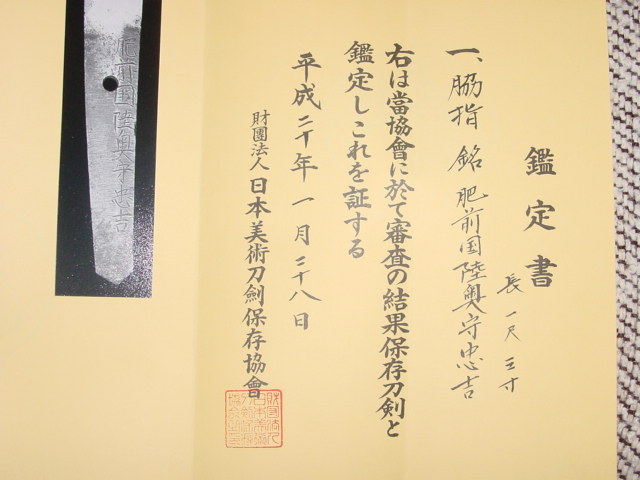 鑑定書
一、脇指 銘 肥前国陸奥守忠吉
長 一尺 三寸
右は當協會に於て審査の結果保存刀剣と
鑑定しこれを証する
平成二十年一月二十八日
財團法人日本美術刀劍保存協會
肥前国陸奥守忠吉